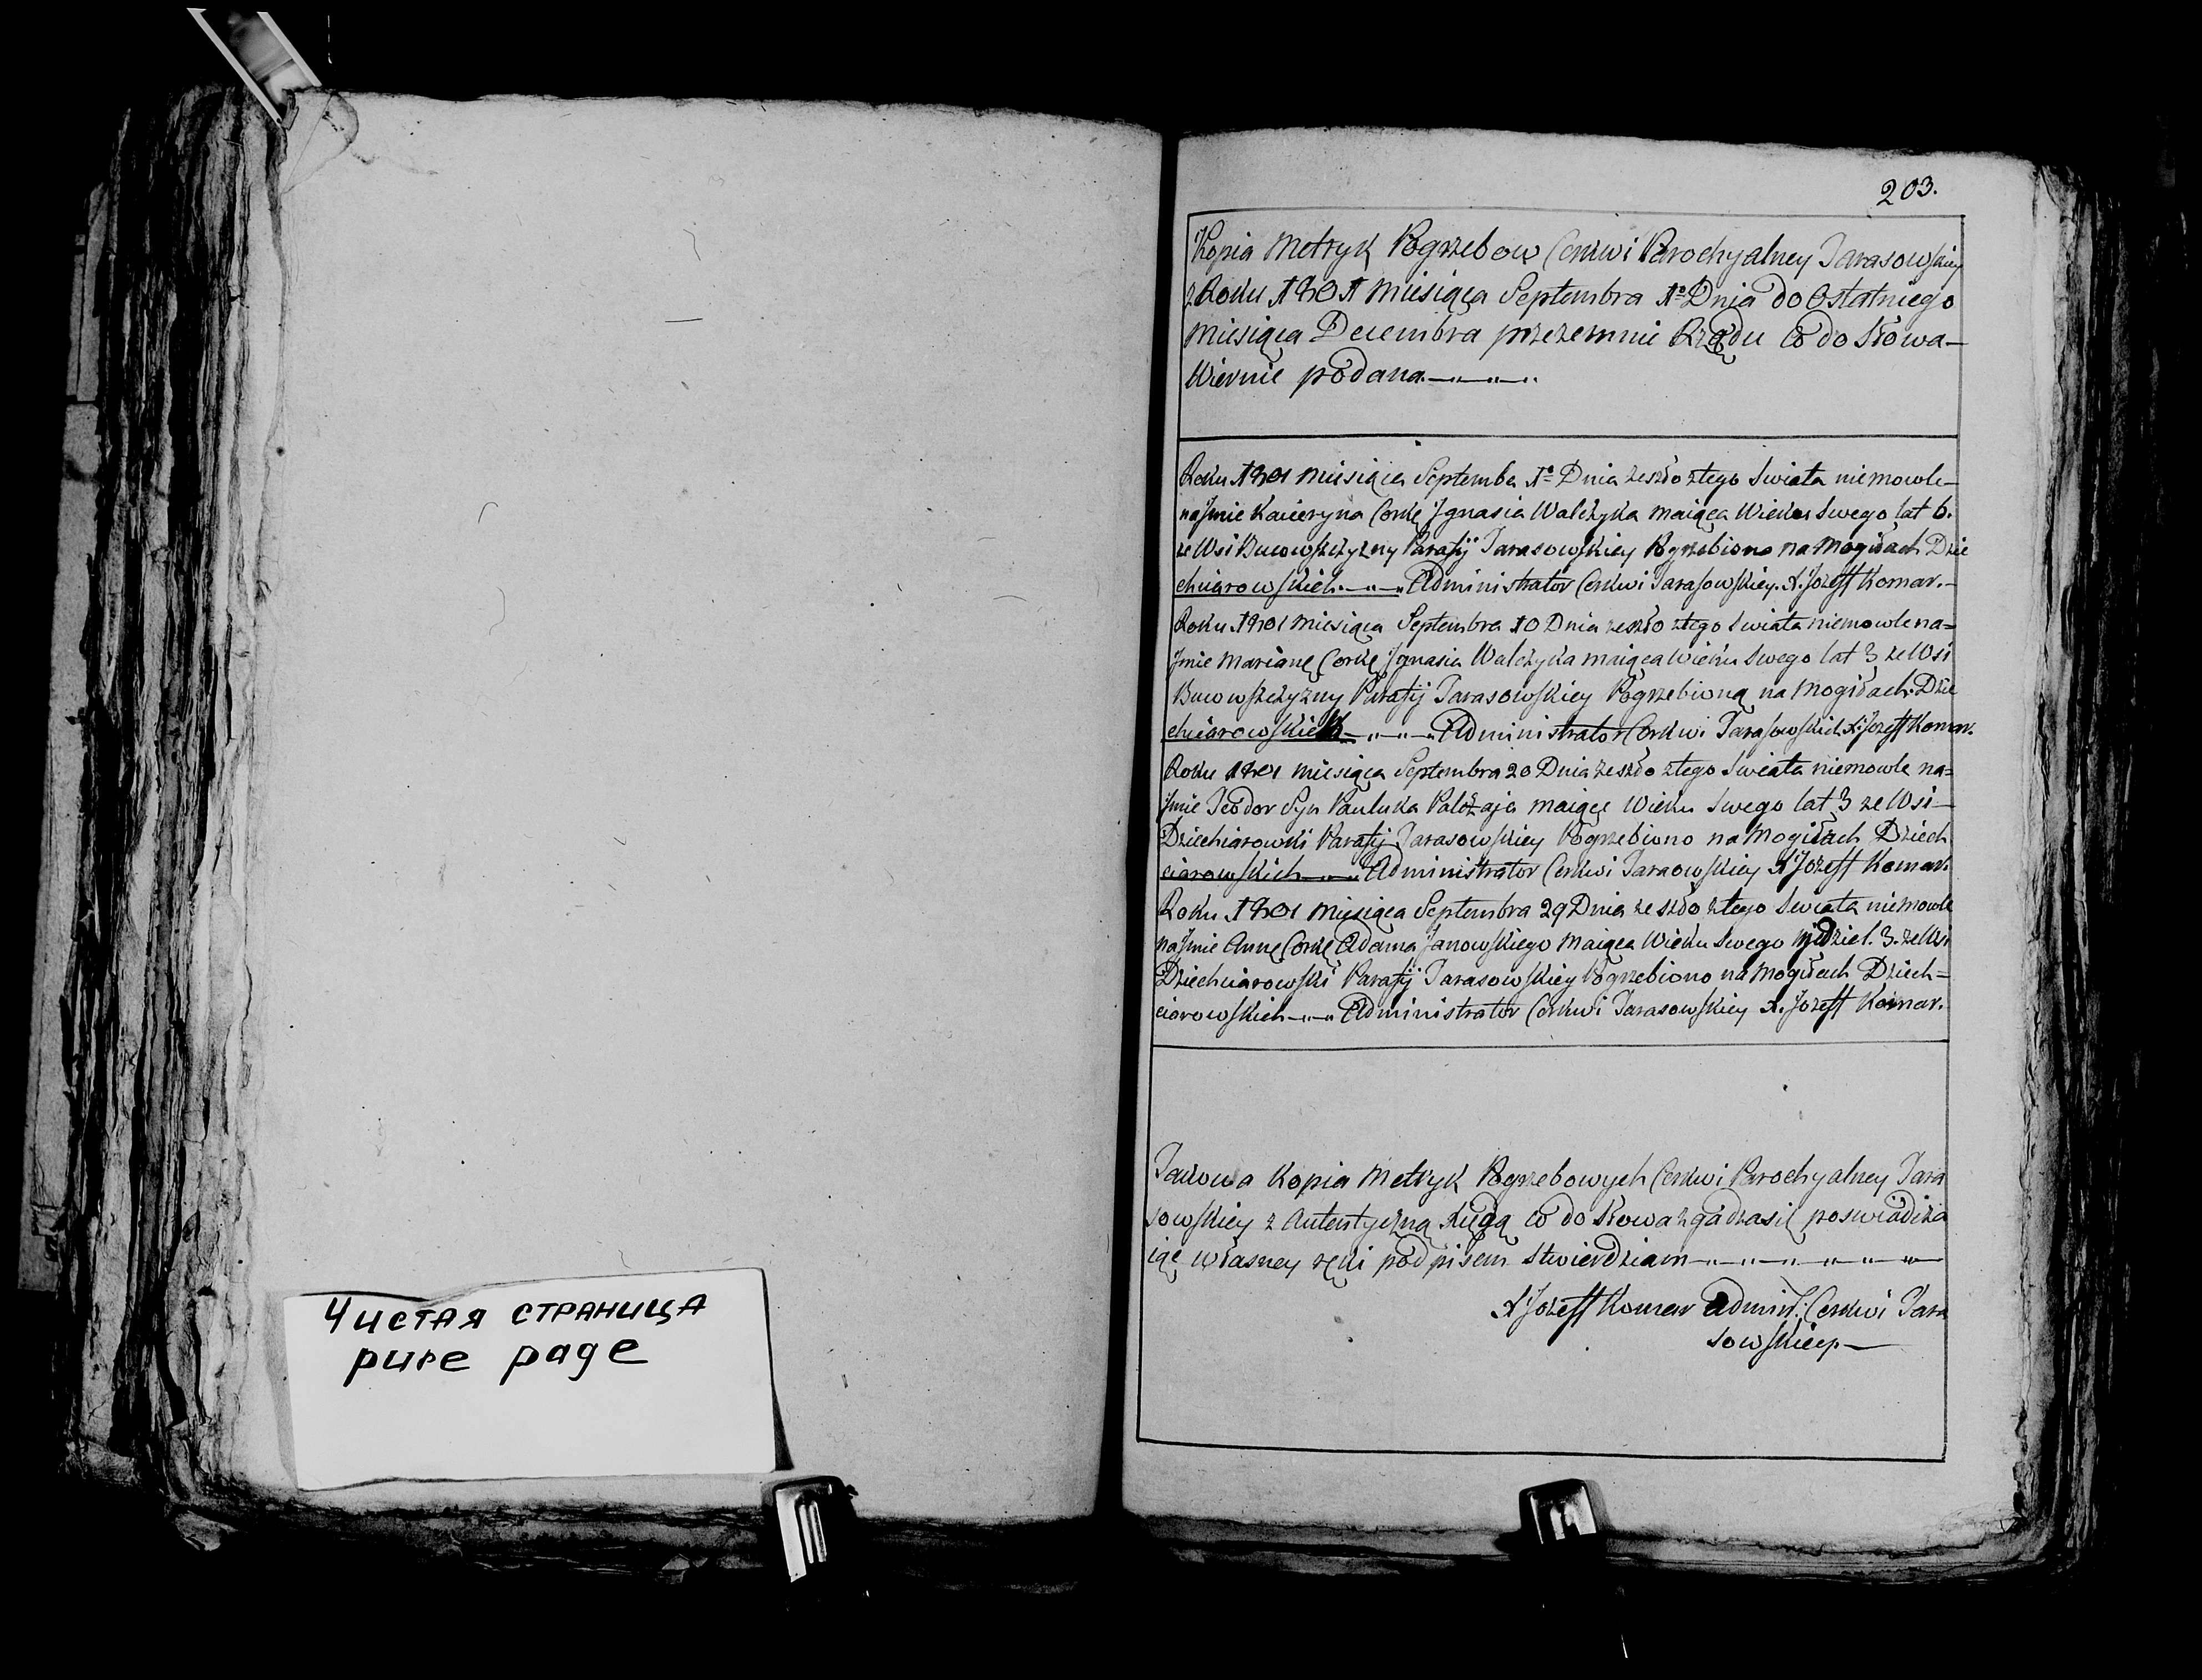 Чистая страница
pure page
203.
Kopia Metryk Pogrzebow Cerkwi Parochyalney Tarasowskiey
z Roku 1801 Miesiąca Septembra 1º Dnia do Ostatniego
Miesiąca Decembra przezemnie Rządu Co do Słowa—
Wiernie podana
Roku 1801 Miesiąca Septemba 1º Dnia zeszło ztego Swiata niemowle—
na Jmie Kacieryna Corkę Jgnasia Walczyka maiąca Wieku Swego lat 6.
ze Wsi Bucowszczyzny Parafij Tarasowskiey Pogrzebiono na Mogiłach Dzie
chciarowskich Administrator Cerkwi Tarasowskiey. X. Jozeff Komar.—
Roku 1801 Miesiąca Septembra 10 Dnia zeszło ztego Swiata niemowle na=
Jmie Marianę Corkę Jgnasia Walczyka maiąca Wieku Swego lat 3 ze Wsi
Bucowszczyzny Parafij Tarasowskiey Pogrzebioną na Mogiłach Dzie
chciarowskich Administrator Cerkwi Tarasowskich X. Jozeff Komar.
Roku 1801 Miesiąca Septembra 20 Dnia zeszło ztego Swiata niemowle na=
Jmie Teodor Syn Pauluka maiące Wieku Swego lat 3 ze Wsi—
Dziechciarowki Parafij Tarasowskiey Pogrzebiono na Mogiłach Dziech
ciarowskich Administrator Cerkwi Taraowskiey X Jozeff Komar.
Roku 1801 Miesiąca Septembra 29 Dnia zeszło ztego Swiata niemowle
na Jmie Annę Corkę Adama Janowskiego maiąca Wieku Swego niedziel. 3. ze Wsi
Dziechciarowski Parafij Tarasowskiey Pogrzebiono na Mogiłach Dziech=
ciarowskich Administrator Cerkwi Tarasowskiey X. Jozeff Komar.
Takowa Kopia Metryk Pogrzebowych Cerkwi Parochyalney Tara
sowskiey z Autentyczną Xięgą Co do Słowa zgadzasię poswiadcza
iąc własney ręki podpisem Stwierdziam
X Jozeff Komar Admin: Cerkwi Tara
sowskiey.—